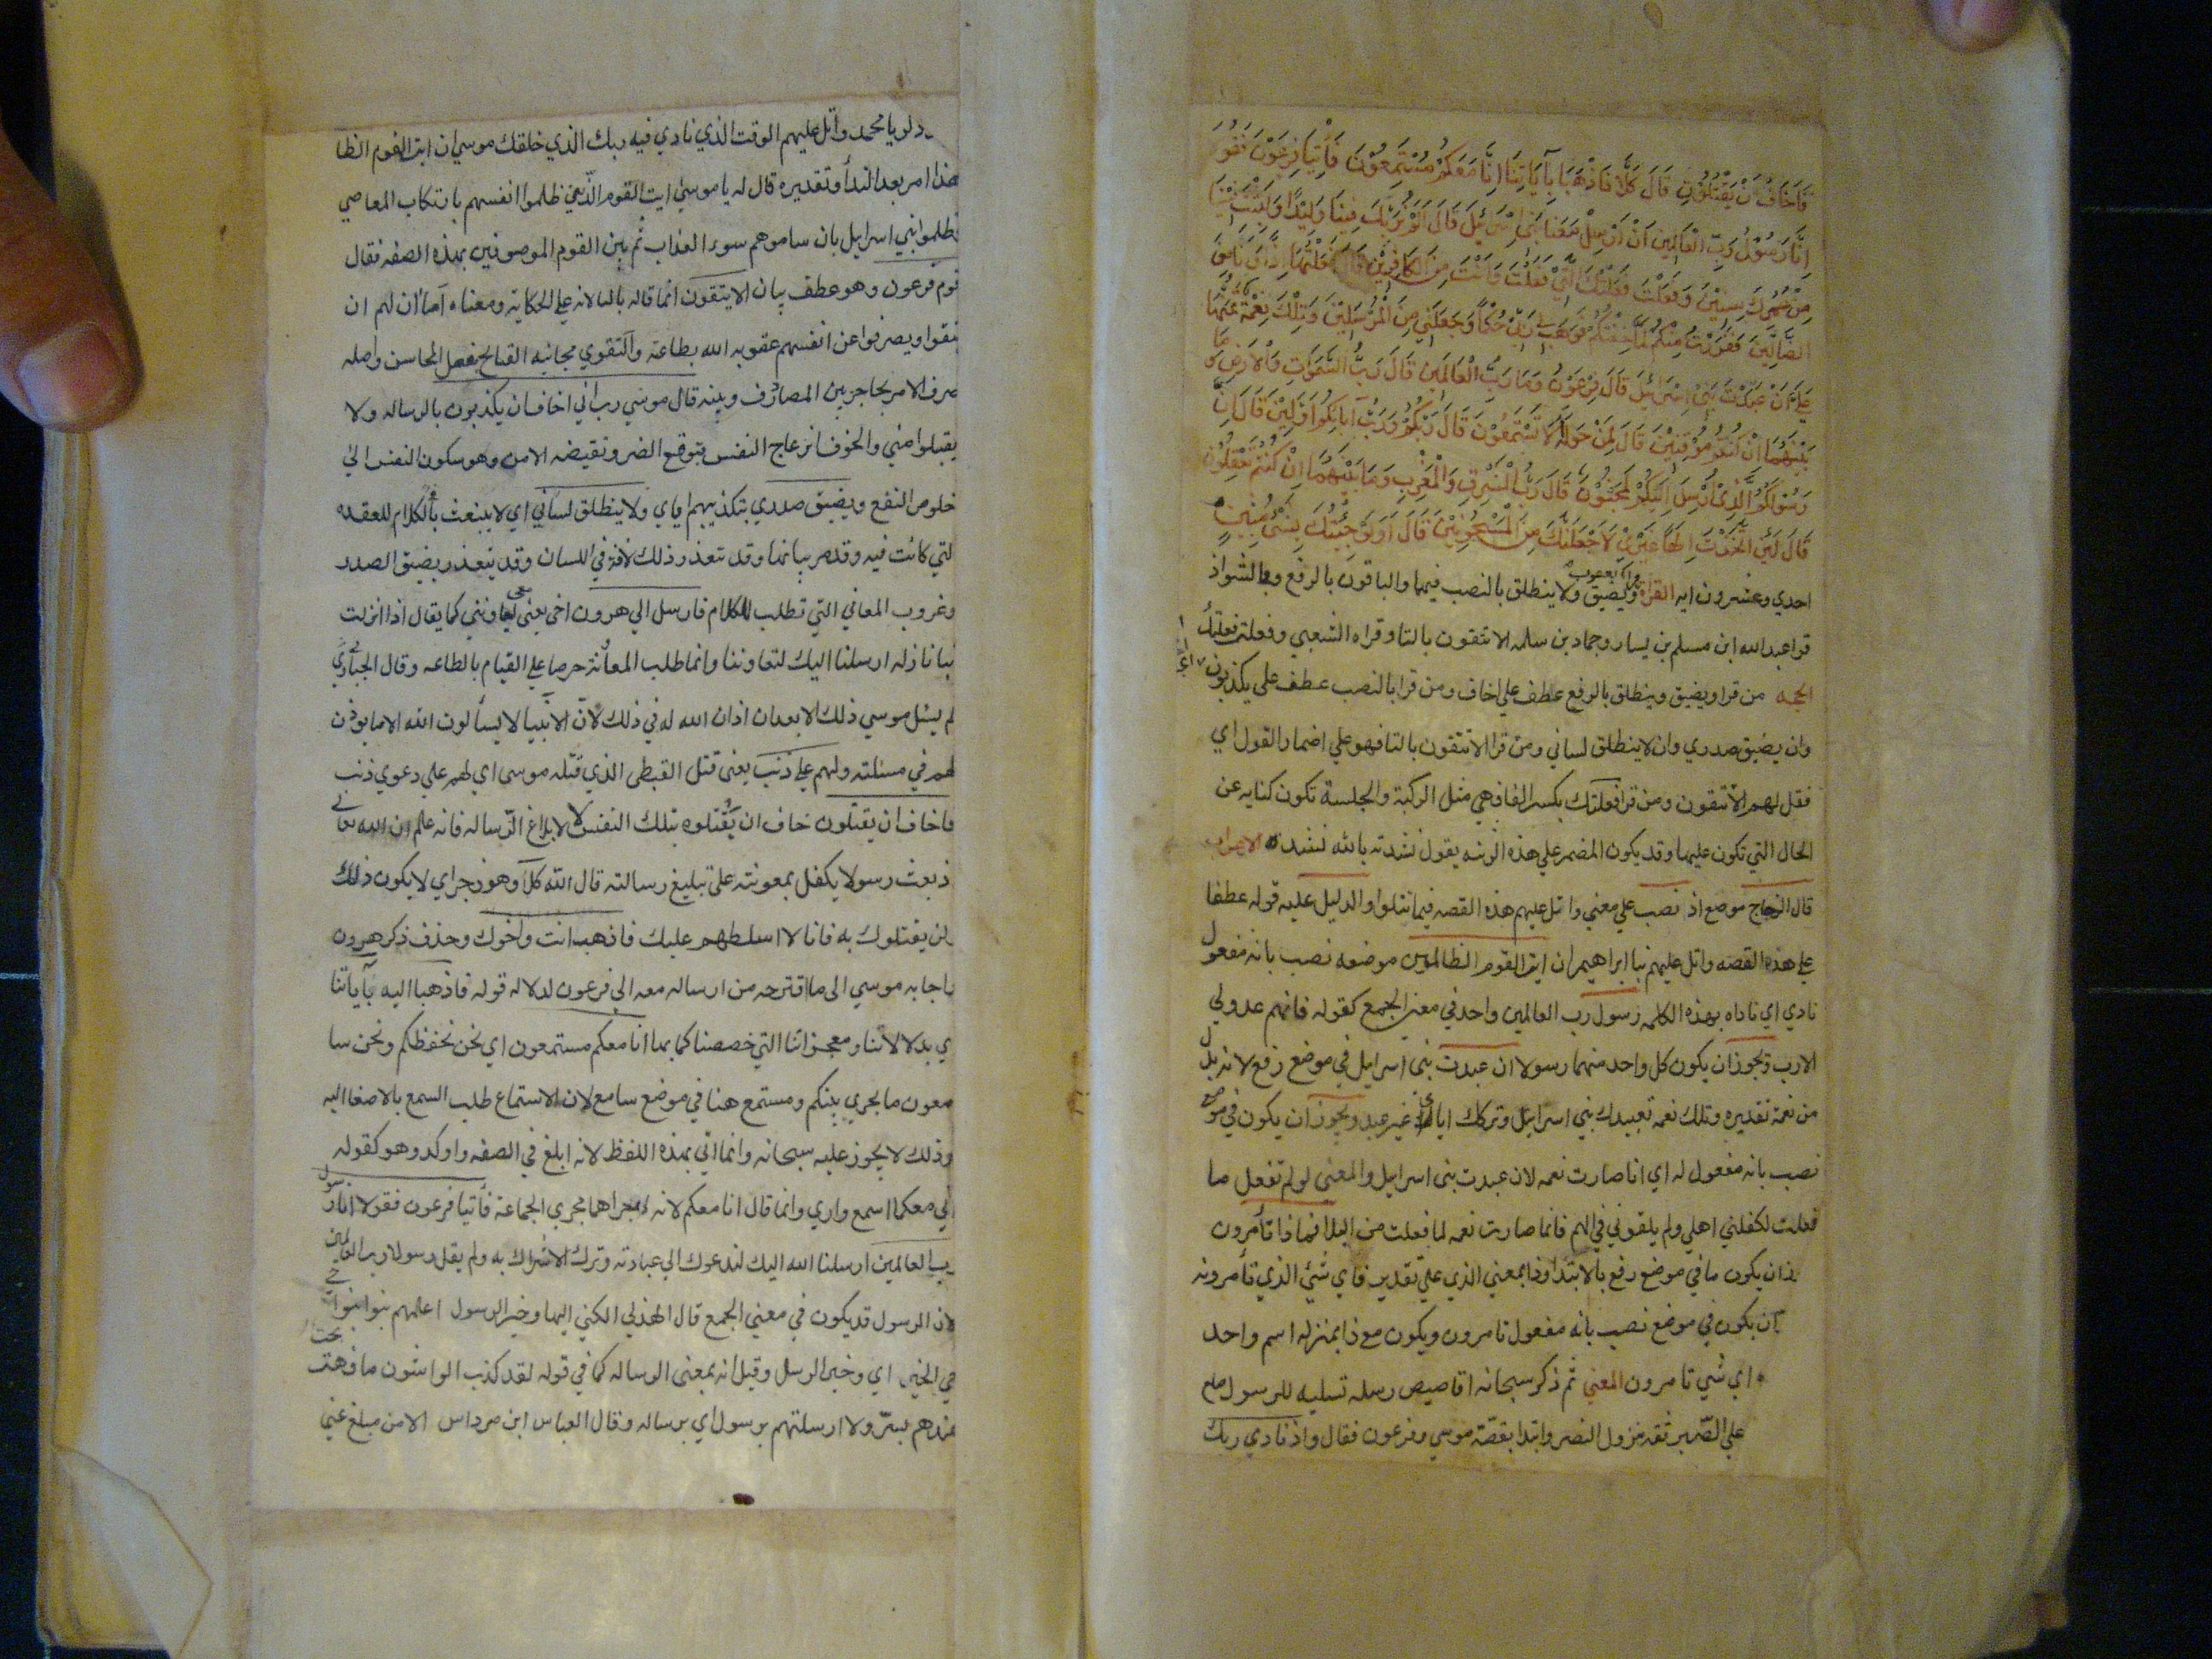 فَاَخَافُ اَنْ يَقْتُلُوْنِ قَالَ كَلَّا فَاذْهَبَا بِآيَاتِنَا اِنَّا مَعَكُمْ مُسْتَمِعُوْنَ فَاْتِيَا فِرْعَوْنَ فَقُوْلَا
اِنَّا رَسُوْلُ رَبِّ الْعَالَمِيْنَ اَنْ اَرْسِلْ مَعَنَا بَنِيْ اِسْرَائِيْلَ قَالَ اَلَمْ نُرَبِّكَ فِيْنَا وَلِيْدًا وَلَبِثْتَ فِيْنَا
مِنْ عُمُرِكَ سِنِيْنَ وَفَعَلْتَ فَعْلَتَكَ الَّتِيْ فَعَلْتَ وَاَنْتَ مِنَ الْكَافِرِيْنَ قَالَ فَعَلْتُهَا اِذًا وَاَنَا مِنَ
الضَّالِّيْنَ فَفَرَرْتُ مِنْكُمْ لَمَّا خِفْتُكُمْ فَوَهَبَ لِيْ رَبِّيْ حُكْمًا وَجَعَلَنِيْ مِنَ الْمُرْسَلِيْنَ وَتِلْكَ نِعْمَةٌ تَمُنُّهَا
عَلَيَّ اَنْ عَبَّدْتَ بَنِيْ اِسْرَائِيْلَ قَالَ فِرْعَوْنُ وَمَا رَبُّ الْعَالَمِيْنَ قَالَ رَبُّ السَّمٰوَاتِ وَالْاَرْضِ وَمَا
بَيْنَهُمَا اِنْ كُنْتُمْ مُوْقِنِيْنَ قَالَ لِمَنْ حَوْلَهُ اَلَا تَسْتَمِعُوْنَ قَالَ رَبُّكُمْ وَرَبُّ آبَائِكُمُ الْاَوَّلِيْنَ قَالَ اِنَّ
رَسُوْلَكُمُ الَّذِيْ اُرْسِلَ اِلَيْكُمْ لَمَجْنُوْنٌ قَالَ رَبُّ الْمَشْرِقِ وَالْمَغْرِبِ وَمَا بَيْنَهُمَا اِنْ كُنْتُمْ تَعْقِلُوْنَ
قَالَ لَئِنِ اتَّخَذْتَ اِلٰهًا غَيْرِيْ لَاَجْعَلَنَّكَ مِنَ الْمَسْجُوْنِيْنَ قَالَ اَوَلَوْ جِئْتُكَ بِشَيْءٍ مُبِيْنٍ
احدي وعشرون ايه القراة قرا يعقوب ويضيق ولا ينطلق بالنصب فيهما والباقون بالرفع وفي الشواذ
قرا عبد الله ابن مسلم بن يسار وحماد بن سلمه الا تتقون بالتا وقراه الشعبي وفعلت فعلتك
الحجه من قرا ويضيق وينطلق بالرفع عطف علي اخاف ومن قرا بالنصب عطف علي يكذبون اي
وان يضيق صدري وان لا ينطلق لساني ومن قرا الا تتقون بالتا فهو علي اضمار القول اي
فقل لهم الا تتقون ومن قرا فعلتك بكسر الفا فهي مثل الركبة والجلسة تكون كنايه عن
الحال التي تكون عليها وقد يكون المصدر علي هذه الزنه يقول نشدته بالله نشدة الاعراب
قال الزجاج موضع اذ نصب علي معني واتل عليهم هذه القصه فيما تتلوا والدليل عليه قوله عطفا
علي هذه القصه واتل عليهم نبا ابراهيم ان ايت القوم الظالمين موضعه نصب بانه مفعول
نادي اي ناداه بهذه الكلمه رسول رب العالمين واحد في معني الجمع كقوله فانهم عدو لي
الا رب ويجوز ان يكون كل واحد منهما رسولا ان عبدت بني اسرايل في موضع رفع لانه بدل
من نعمة تقديره وتلك نعمه تعبيدك بني اسرايل وتركك اياي غير عبد ويجوز ان يكون في موضع
نصب بانه مفعول له اي انما صارت نعمه لان عبدت بني اسرايل والمعني لو لم تفعل ما
فعلت لكفلني اهلي ولم يلقوني في اليم فانما صارت نعمه لما فعلت من البلا فماذا تأمرون
يجوز ان يكون ما في موضع رفع بالابتدا وذا بمعني الذي علي تقدير فاي شئي الذي تأمرونه
ان يكون في موضع نصب بانه مفعول تامرون ويكون مع ذا بمنزله اسم واحد
اي شي تامرون المعني ثم ذكر سبحانه اقاصيص رسله تسليه للرسول صلع
علي الصّبر ثقه بنزول النصر وابتدا بقصّة موسي وفرعون فقال واذ نادي ربك
دلو يا محمد واتل عليهم الوقت الذي نادي فيه ربك الذي خلقك موسي ان ائت القوم الظا
هذا امر بعد الندأ وتقديره قال له يا موسي ايت القوم الذين ظلموا انفسهم بارتكاب المعاصي
وظلموا بني اسرايل بان ساموهم سوء العذاب ثم بين القوم الموصوفين بهذه الصفه فقال
قوم فرعون وهو عطف بيان الا يتقون انما قاله باليا لانه علي الحكاية ومعناه اما ان لهم ان
يتقوا ويصرفوا عن انفسهم عقوبه الله بطاعته والتقوي مجانبه القبائح بفعل المحاسن واصله
صرف الامر بحاجز بين الصارف وبينه قال موسي رب اني اخاف ان يكذبون بالرساله ولا
يقبلوا مني والخوف انزعاج النفس بتوقع الضر ونقيضه الامن وهو سكون النفس الي
خلوص النفع ويضيق صدري بتكذيبهم اياي ولا ينطلق لساني اي لا ينبعث بالكلام للعقده
التي كانت فيه وقد مر بيانها وقد يتعذر ذلك لافة في اللسان وقد يتعذر بضيق الصدر
وغروب المعاني التي تطلب للكلام فارسل الي هرون اخي يعني ليعاونني كما يقال اذا نزلت
بنا نازله ارسلنا اليك لتعاوننا وانما طلب المعاونة حرصا علي القيام بالطاعه وقال الجبائي
لم يسئل موسي ذلك الا بعد ان اذن الله له في ذلك لانّ الانبيا لا يسألون الله الا ما يوذن
لهم في مسئلته ولهم علي ذنب يعني قتل القبطي الذي قتله موسي اي لهم علي دعوي ذنب
فاخاف ان يقتلون خاف ان يقتلوه بتلك النفس لا لابلاغ الرّساله فانه علم ان الله تعالي
اذ بعث رسولا يكفل بمعونته علي تبليغ رسالته قال الله كلا وهو زجر اي لا يكون ذلك
ولن يقتلوك به فانا لا اسلطهم عليك فاذهب انت واخوك وحذف ذكر هرون
باجابه موسي الي ما اقترحه من ارساله معه الي فرعون لدلاله قوله فاذهبا اليه بآياتنا
اي بدلالاتنا ومعجزاتنا التي خصصناكما بها انا معكم مستمعون اي نحن نحفظكم ونحن سا
معون ما يجري بينكم ومستمع هنا في موضع سامع لان الاستماع طلب السمع بالاصغا اليه
وذلك لا يجوز عليه سبحانه وانما اتي بهذه اللفظ لانه ابلغ في الصفه واوكد وهو كقوله
انني معكما اسمع واري وانما قال انا معكم لانه اجراهما مجري الجماعة فأتيا فرعون فقولا انا رسول
رب العالمين ارسلنا الله اليك لندعوك الي عبادته وترك الاشراك به ولم يقل رسولا رب العالمين
لان الرسول قد يكون في معني الجمع قال الهذلي الكني اليها وخير الرسول اعلمهم بنواحي
الخبر اي وخير الرسل وقيل انه بمعني الرساله كما في قوله لقد كذب الواشون ما فهت
عندهم بسرّ ولا ارسلتهم برسول اي برساله وقال العباس ابن مرداس الا من مبلغ عني